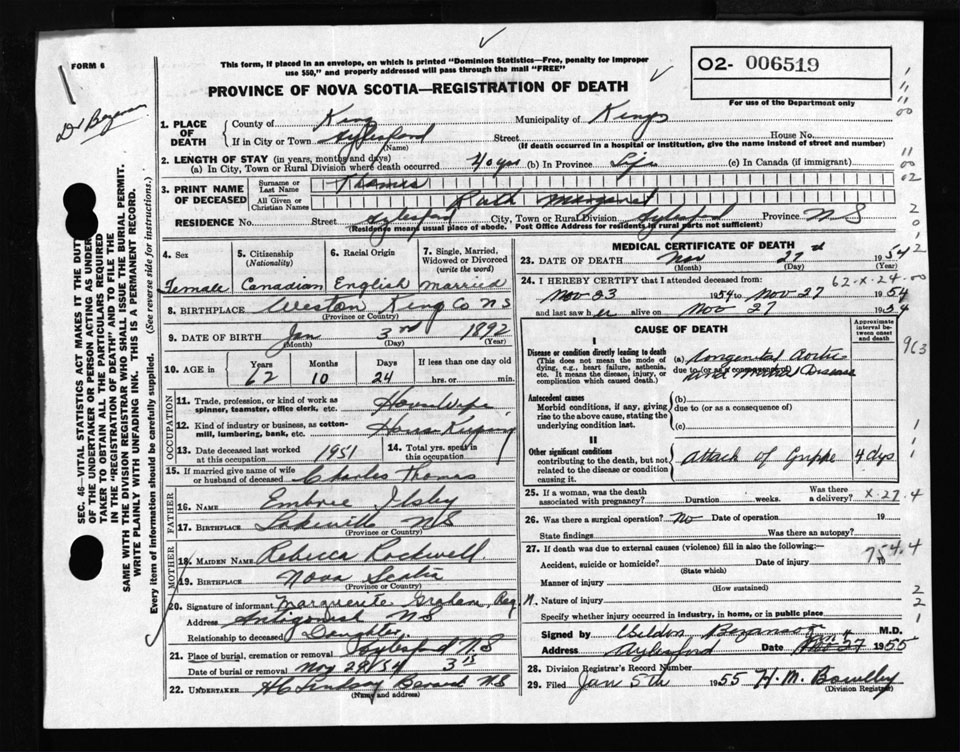 FORM 6
This form, if placed in an envelope, on which is printed "Dominion Statistics—Free, penalty for improper
use $50," and properly addressed will pass through the mail "FREE"
O2- 006519
For use of the Department only
PROVINCE OF NOVA SCOTIA—REGISTRATION OF DEATH
1. PLACE OF DEATH
County of King Municipality of Kings
If in City or Town Aylesford Street House No.
(Name) (If death occurred in a hospital or institution, give the name instead of street and number)
2. LENGTH OF STAY (in years, months and days)
(a) In City, Town or Rural Division where death occurred 40 yrs (b) In Province Life (c) In Canada (if immigrant)
3. PRINT NAME OF DECEASED
Surname or Last Name Thomas
All Given or Christian Names Ruth Margaret
RESIDENCE No. Street Aylesford City, Town or Rural Division Aylesford Province N S
(Residence means usual place of abode. Post Office Address for residents in rural parts not sufficient)
4. Sex 5. Citizenship (Nationality) 6. Racial Origin 7. Single, Married, Widowed or Divorced (write the word)
Female Canadian English Married
8. BIRTHPLACE Weston King Co N S
(Province or Country)
9. DATE OF BIRTH Jan 3rd 1892
(Month) (Day) (Year)
10. AGE in Years Months Days If less than one day old
62 10 24 hrs. or min.
OCCUPATION
11. Trade, profession, or kind of work as spinner, teamster, office clerk, etc. House Wife
12. Kind of industry or business, as cotton-mill, lumbering, bank, etc. House Keeping
13. Date deceased last worked at this occupation 1951 14. Total yrs. spent in this occupation
15. If married give name of wife or husband of deceased Charles Thomas
FATHER
16. NAME Embree Ilsley
17. BIRTHPLACE Lakeville N S
(Province or Country)
MOTHER
18. MAIDEN NAME Rebecca Rockwell
19. BIRTHPLACE Nova Scotia
(Province or Country)
20. Signature of informant Marguerite Graham, Reg. N.
Address Antigonish N S
Relationship to deceased Daughter
21. Place of burial, cremation or removal Aylesford N.S
Date of burial or removal Nov 29/54
22. UNDERTAKER H C Lindsay Berwick N.S
(Name and address)
MEDICAL CERTIFICATE OF DEATH
23. DATE OF DEATH Nov 27 1954
(Month) (Day) (Year)
62-X-24-00
24. I HEREBY CERTIFY that I attended deceased from:
Nov 23 1954 to Nov 27 1954
and last saw her alive on Nov 27 1954
CAUSE OF DEATH
Approximate interval between onset and death
I
Disease or condition directly leading to death
(This does not mean the mode of dying, e.g., heart failure, asthenia, etc. It means the disease, injury, or complication which caused death.)
(a) Congenital Aortic
due to (or as a consequence of)
and Mitral Disease
Antecedent causes
Morbid conditions, if any, giving rise to the above cause, stating the underlying condition last.
(b)
due to (or as a consequence of)
(c)
II
Other significant conditions contributing to the death, but not related to the disease or condition causing it.
Attack of Grippe 4 dys
25. If a woman, was the death associated with pregnancy? Duration weeks. Was there a delivery? X-27.4
26. Was there a surgical operation? No Date of operation 19
State findings Was there an autopsy?
27. If death was due to external causes (violence) fill in also the following:—
Accident, suicide or homicide? Date of injury 19
(State which)
754.4
Manner of injury
(How sustained)
Nature of injury
Specify whether injury occurred in industry, in home, or in public place
Signed by Weldon Bezanson M.D.
Address Aylesford Date Nov 27 1955
28. Division Registrar's Record Number
29. Filed Jan 5th 1955 H. M. Bowlby
(Division Registrar)
SEC. 46—VITAL STATISTICS ACT MAKES IT THE DUTY
OF THE UNDERTAKER OR PERSON ACTING AS UNDERTAKER TO OBTAIN ALL THE PARTICULARS REQUIRED
IN THE "REGISTRATION OF DEATH" AND TO FILE THE
SAME WITH THE DIVISION REGISTRAR WHO SHALL ISSUE THE BURIAL PERMIT.
WRITE PLAINLY WITH UNFADING INK. THIS IS A PERMANENT RECORD.
Every item of information should be carefully supplied. (See reverse side for instructions.)